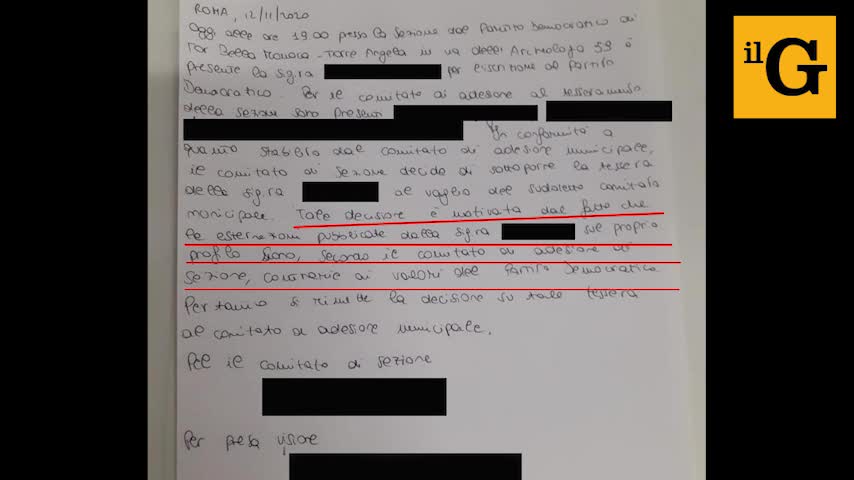 ROMA, 12/11/2020
Oggi alle ore 19.00 presso la sezione del Partito Democratico di
Tor Bella Monaca - Torre Angela in via dell' Archeologia 59 è
presente la sig.ra per iscrizione al Partito
Democratico. Per il comitato di adesione al tesseramento
della sezione sono presenti
In conformità a
quanto stabilito dal comitato di adesione municipale,
il comitato di sezione decide di sottoporre la tessera
della sig.ra al vaglio del suddetto comitato
municipale. Tale decisione è motivata dal fatto che
le esternazioni pubblicate dalla sig.ra sul proprio
profilo siano, secondo il comitato di adesione di
sezione, contrarie ai valori del Partito Democratico
Pertanto si rimette la decisione su tale tessera
al comitato di adesione municipale.
Per il comitato di sezione
Per presa visione
il G